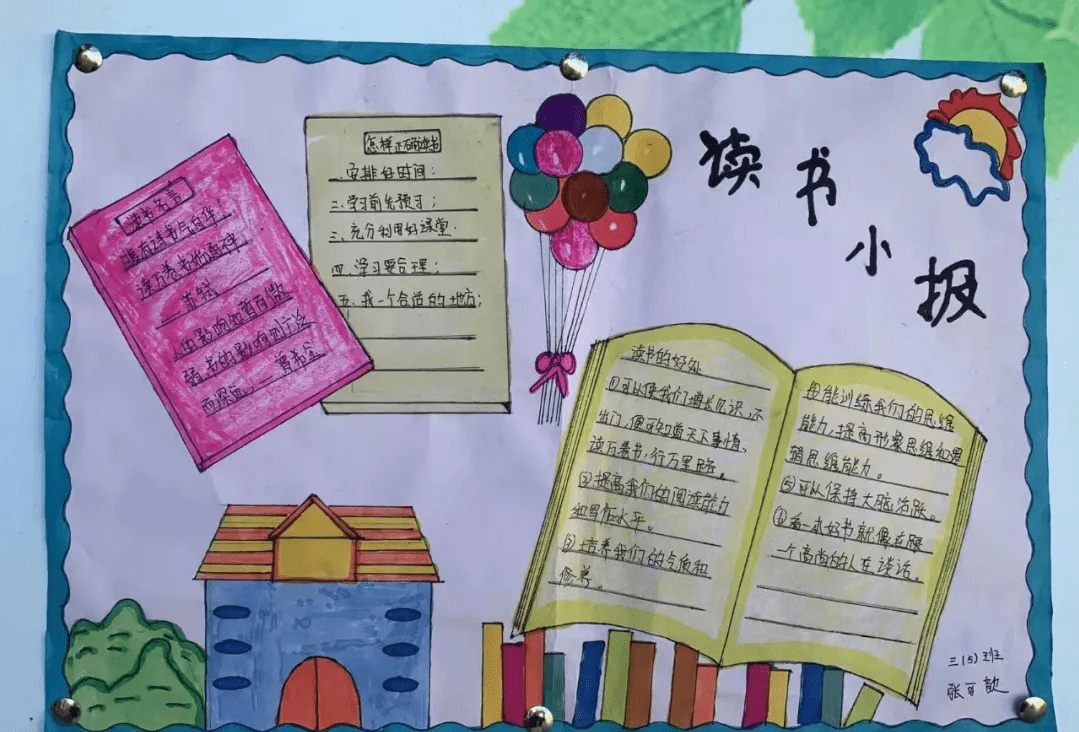 读书小报
读书名言
腹有诗书气自华
读万卷书始通神
——苏轼
怎样正确读书
一、安排好时间；
二、学习前先预习；
三、充分利用好课堂.
四、学习要合理；
五、找一个合适的地方；
读书的好处
①可以使我们增长见识，不
出门，便可知道天下事情。
读万卷书，行万里路。
②提高我们的阅读能力
和写作水平。
③培养我们的气质和
修养
④能训练我们的思维
能力，提高形象思维和逻
辑思维能力。
⑤可以保持大脑活跃。
⑥看一本好书就像在跟
一个高尚的人在谈话。
三(5)班
张可歆